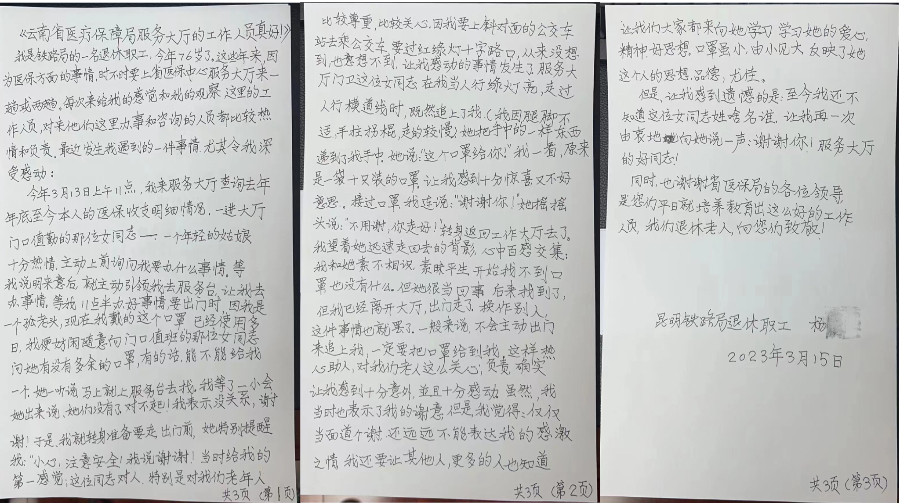 《云南省医疗保障局服务大厅的工作人员真好!》
我是铁路局的一名退休职工,今年76岁了,这些年来,因
为医保方面的事情,时不时要上省医保中心服务大厅来一
趟或两趟。每次来给我的感觉和我的观察,这里的工
作人员,对来他们这里办事和咨询的人员都比较热
情和负责。最近发生我遇到的一件事情,尤其令我深
受感动:
今年3月13日上午11点,我来服务大厅查询去年
年底至今本人的医保收支明细情况,一进大厅
门口值勤的那位女同志——一个年轻的姑娘
十分热情,主动上前询问我要办什么事情。等
我说明来意后,就主动引领我去服务台,让我去
办事情,等我11点半办好事情要出门时,因我是
一个孤老头,现在我戴的这个口罩已经使用多
日,我便好闲随意向门口值班的那位女同志
问她有没有多余的口罩,有的话,能不能给我
一个她一听说马上就上服务台去找,我等了一小会
她出来说:她们没有了对不起!我表示没关系,谢
谢!于是,我就转身准备要走出门前,她特别提醒
我:"小心,注意安全!我说谢谢!当时给我的
第一感觉:这位同志对人,特别是对我们老年人
共3页(第1页)
比较尊重,比较关心,因我要上斜对面的公交车
站去乘公交车,要过红绿灯十字路口,从来没想
到,也意想不到,让我感动的事情发生了,服务大
厅门口这位女同志,在我当人行绿灯亮,走过
人行横道线时,既然追上了我。(我因腿脚不
适,手拄拐棍,走的较慢)她把手中的一样东西
递到了我手中,她说:"这个口罩给你!"我一看,原来
是一袋十只装的口罩,让我感到十分惊喜又不好
意思。接过口罩,我连说:"谢谢你!"她摇摇
头说:"不用谢,你走好!"转身返回工作大厅去了。
我望着她迅速走回去的背影,心中百感交集:
我和她素不相识,素昧平生,开始找不到口
罩也没有什么,但她很当回事,后来找到了,
但我已经离开大厅,出门走了,换作别人,
这件事情也就罢了,一般来说,不会主动出门
来追上我,一定要把口罩给到我,这样热
心助人,对我们老人这么关心,负责,确实
让我感到十分意外,並且十分感动,虽然,我
当时也表示了我的谢意,但是,我觉得:仅仅
当面道个谢,还远远不能表达我的感激
之情,我还要让其他人,更多的人也知道
共3页(第2页)
让我们大家都来向她学习,学习她的爱心,
精神,好思想,口罩虽小,由小见大,反映了她
这个人的思想,品德,尤佳。
但是,让我感到遗憾的是:至今我还不
知道这位女同志姓啥名谁,让我再一次
由衷地向她说一声:谢谢你!服务大厅
的好同志!
同时,也谢谢省医保局的各位领导
是您们平日就培养教育出这么好的工作
人员,我们退休老人,向您们致敬!
昆明铁路局退休职工 杨
2023年3月15日
共3页(第3页)